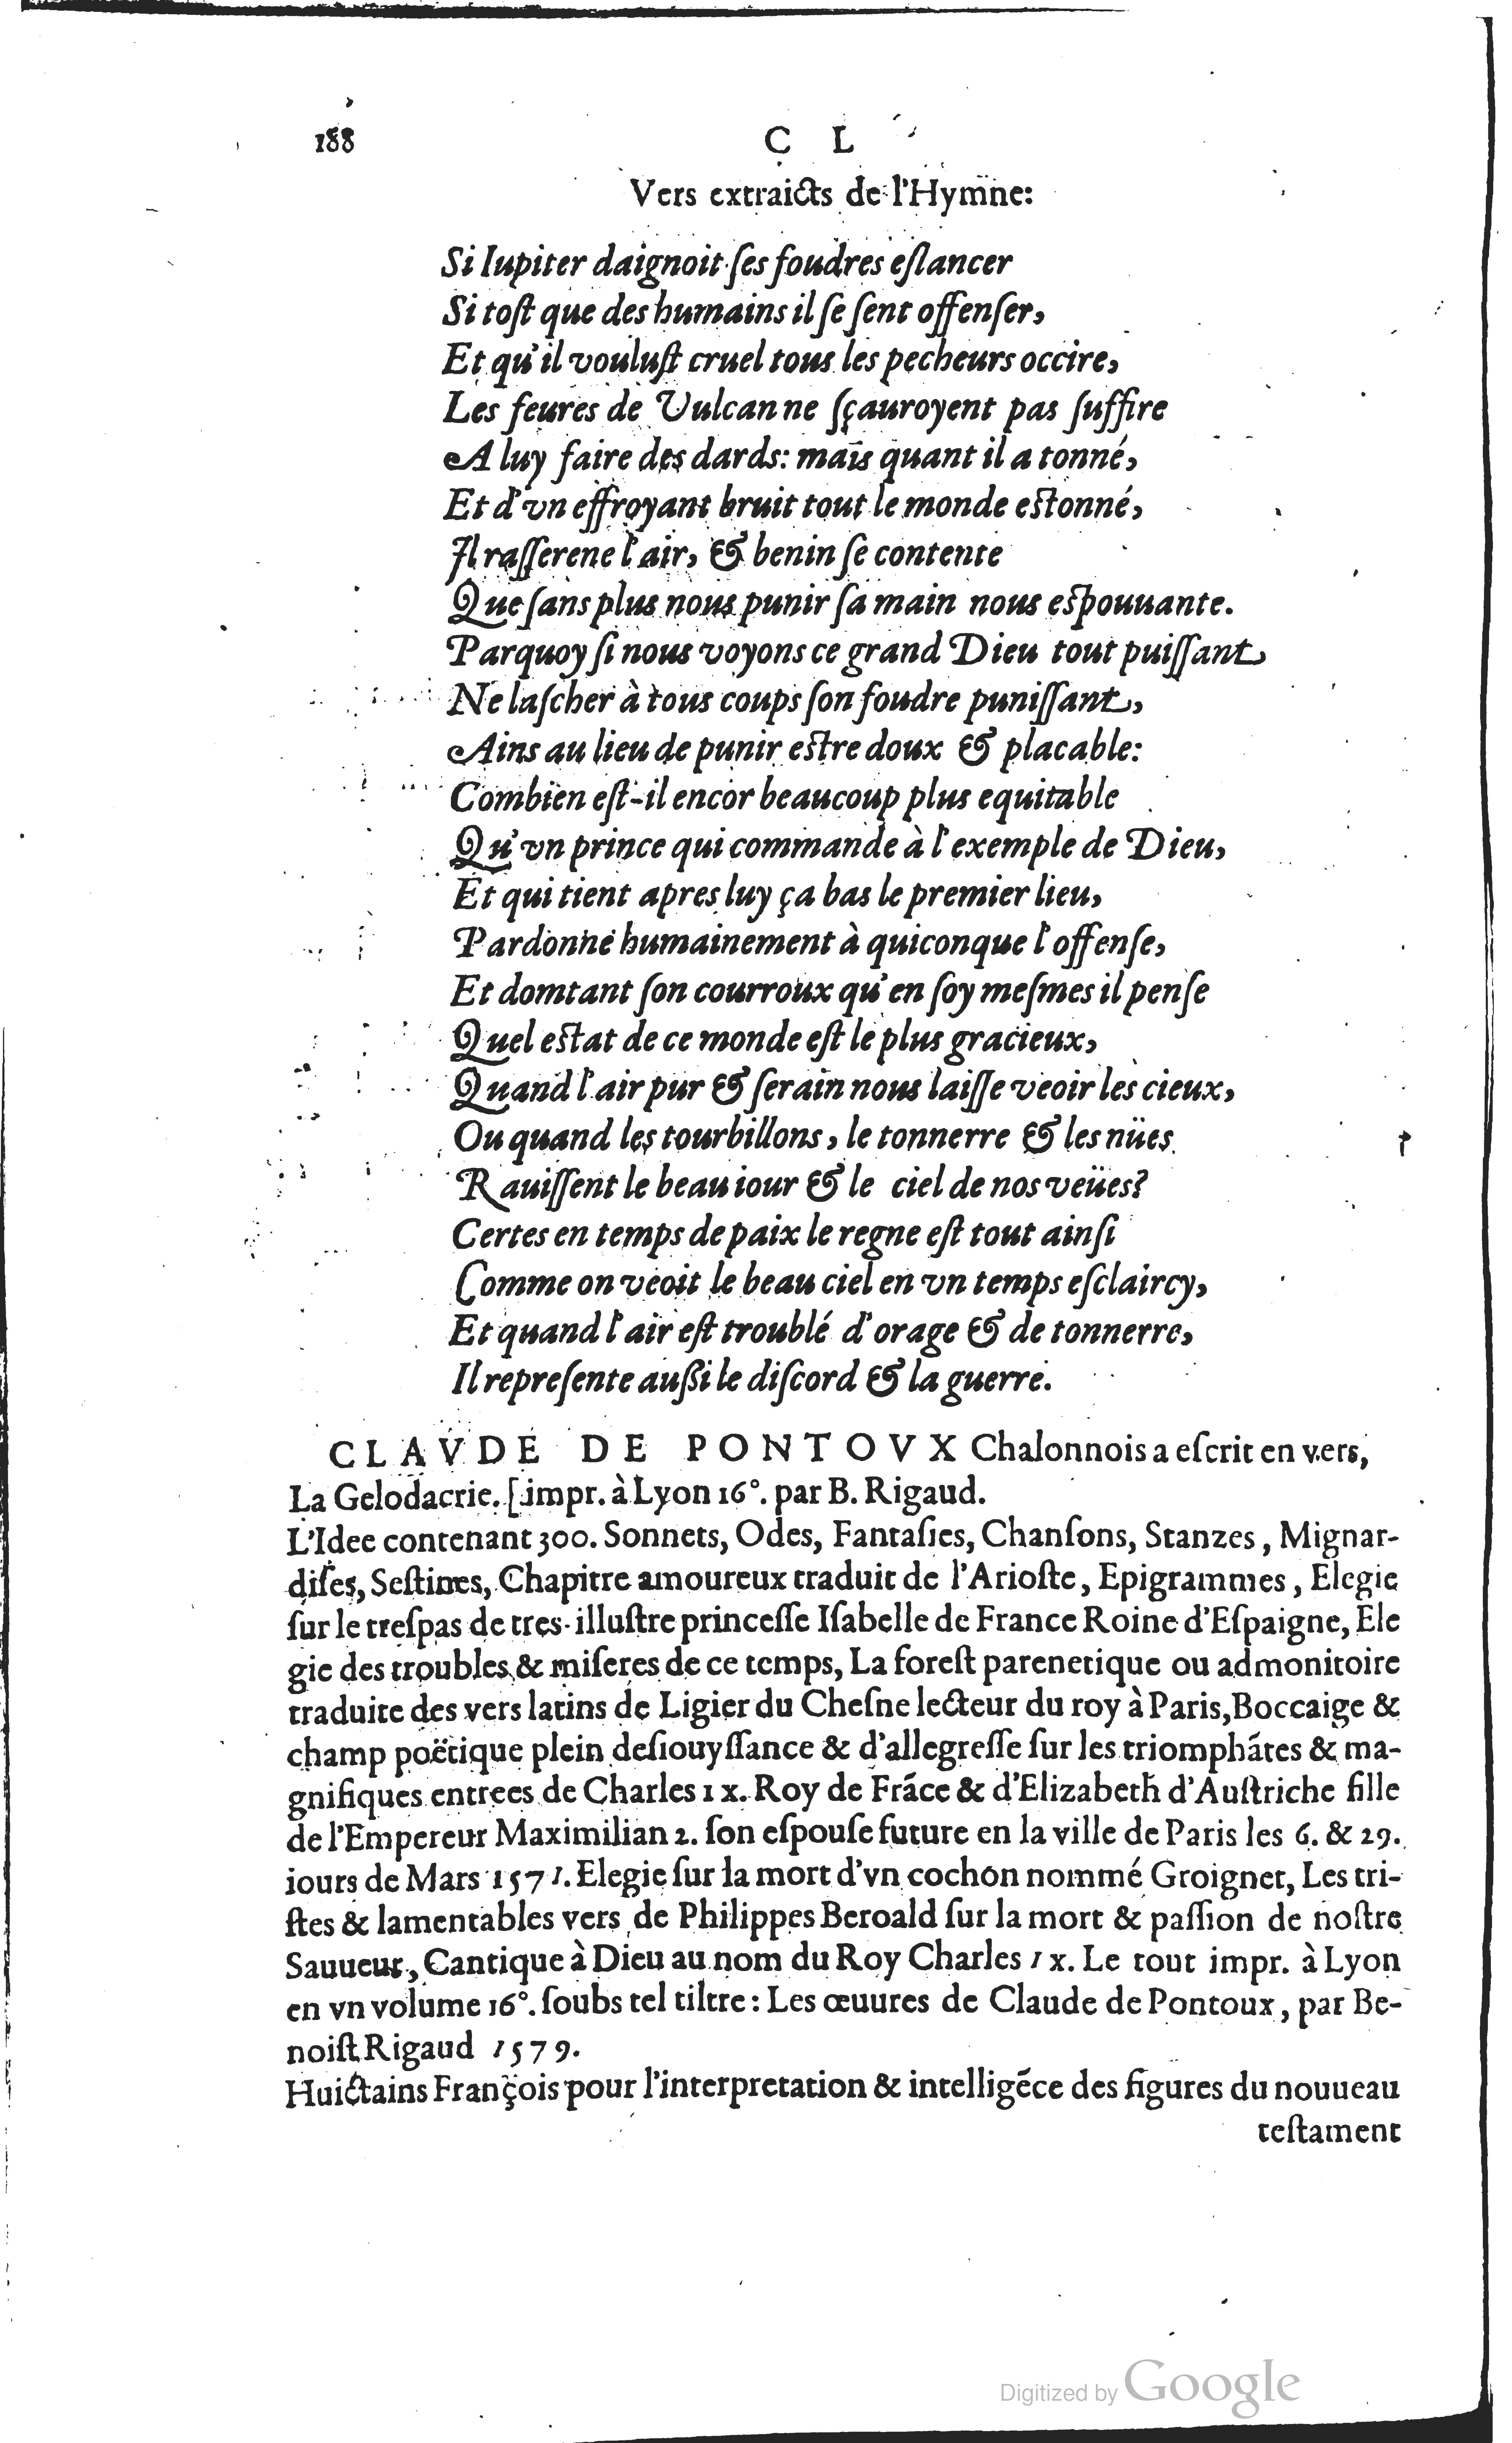 188
C L
Vers extraicts de l'Hymne:
Si Iupiter daignoit ſes foudres eſlancer
Si toſt que des humains il ſe ſent offenſer,
Et qu'il vouluſt cruel tous les pecheurs occire,
Les feures de Vulcan ne ſçauroyent pas ſuffire
A luy faire des dards: mais quant il a tonné,
Et d'vn effroyant bruit tout le monde eſtonné,
Il raſſerene l'air, & benin ſe contente
Que ſans plus nous punir ſa main nous eſpouuante.
Parquoy ſi nous voyons ce grand Dieu tout puiſſant
Ne laſcher à tous coups ſon foudre puniſſant,
Ains au lieu de punir eſtre doux & placable:
Combien eſt-il encor beaucoup plus equitable
Qu'vn prince qui commande à l'exemple de Dieu,
Et qui tient apres luy ça bas le premier lieu,
Pardonne humainement à quiconque l'offenſe,
Et domtant ſon courroux qu'en ſoy meſmes il penſe
Quel eſtat de ce monde eſt le plus gracieux,
Quand l'air pur & ſerain nous laiſſe veoir les cieux,
Ou quand les tourbillons, le tonnerre & les nües
Rauiſſent le beau iour & le ciel de nos veües?
Certes en temps de paix le regne eſt tout ainſi
Comme on veoit le beau ciel en vn temps eſclaircy,
Et quand l'air eſt troublé d'orage & de tonnerre,
Il repreſente auſſi le diſcord & la guerre.
CLAVDE DE PONTOVX Chalonnois a eſcrit en vers,
La Gelodacrie. [impr. à Lyon 16°. par B. Rigaud.
L'Idee contenant 300. Sonnets, Odes, Fantaſies, Chanſons, Stanzes, Mignar-
diſes, Seſtines, Chapitre amoureux traduit de l'Arioſte, Epigrammes, Elegie
ſur le treſpas de tres-illuſtre princeſſe Iſabelle de France Roine d'Eſpaigne, Ele
gie des troubles & miſeres de ce temps, La foreſt parenetique ou admonitoire
traduite des vers latins de Ligier du Cheſne lecteur du roy à Paris, Boccaige &
champ poëtique plein deſiouyſſance & d'allegreſſe ſur les triomphãtes & ma-
gnifiques entrees de Charles IX. Roy de Frãce & d'Elizabeth d'Auſtriche fille
de l'Empereur Maximilian 2. ſon eſpouſe future en la ville de Paris les 6. & 29.
iours de Mars 1571. Elegie ſur la mort d'vn cochon nommé Groignet, Les tri-
ſtes & lamentables vers de Philippes Beroald ſur la mort & paſſion de noſtre
Sauueur, Cantique à Dieu au nom du Roy Charles IX. Le tout impr. à Lyon
en vn volume 16°. ſoubs tel tiltre: Les œuures de Claude de Pontoux, par Be-
noiſt Rigaud 1579.
Huictains François pour l'interpretation & intelligẽce des figures du nouueau
teſtament
Digitized by Google